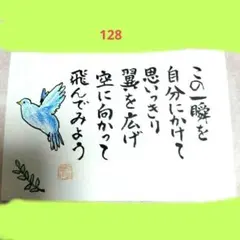 128
この一瞬を
自分にかけて
思いっきり
翼を広げ
空に向かって
飛んでみよう